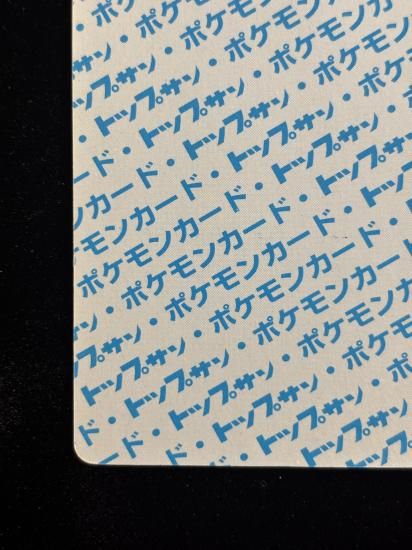 サン・ポケモン
トップサン・ポケモンカ
・トップサン・ポケモン
ード・トップサン・ポケ
カード・トップサン・
モンカード・トップサン
ケモンカード・トップ
ポケモンカード・ト
・ポケモンカード・
サン・ポケモンカード
トップサン・ポケモンカ
・トップサン・ポケモン
ド・トップサン・ポケ
ード・トップサン・
トップサン